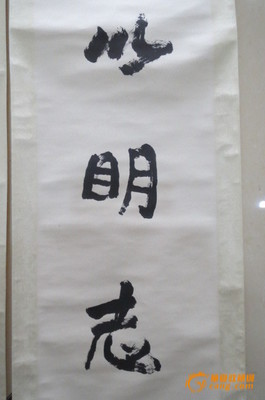 以
明
志